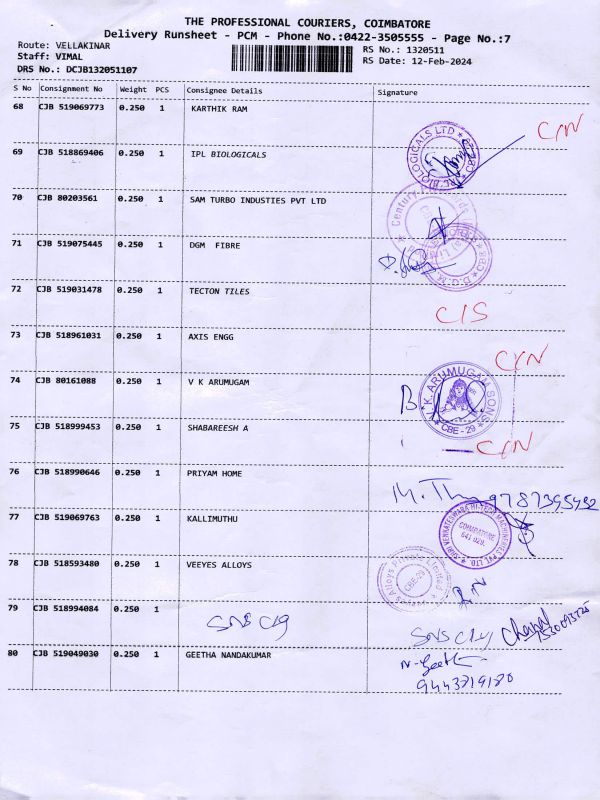 THE PROFESSIONAL COURIERS, COIMBATORE
Delivery Runsheet - PCM - Phone No.:0422-3505555 - Page No.:7
Route: VELLAKINAR
RS No.: 1320511
Staff: VIMAL
RS Date: 12-Feb-2024
DRS No.: DCJB132051107
S No Consignment No Weight PCS Consignee Details Signature
68 CJB 519069773 0.250 1 KARTHIK RAM C/N
69 CJB 518869406 0.250 1 IPL BIOLOGICALS BIOLOGICALS LTD
70 CJB 80203561 0.250 1 SAM TURBO INDUSTIES PVT LTD Century
71 CJB 519075445 0.250 1 DGM FIBRE D.G.M.
72 CJB 519031478 0.250 1 TECTON TILES C/S
73 CJB 518961031 0.250 1 AXIS ENGG C/N
74 CJB 80161088 0.250 1 V K ARUMUGAM V.K. ARUMUGAM SONS CBE-29
75 CJB 518999453 0.250 1 SHABAREESH A C/N
76 CJB 518990646 0.250 1 PRIYAM HOME
77 CJB 519069763 0.250 1 KALLIMUTHU SHRI VENKATESWARA HI-TECH MACHINERIES PVT. LTD. COIMBATORE 641 029.
78 CJB 518593480 0.250 1 VEEYES ALLOYS Alloys Private Limited CBE-29
79 CJB 518994084 0.250 1 SNS Clg SNS Clg
80 CJB 519049030 0.250 1 GEETHA NANDAKUMAR N. Geetha
9443719180